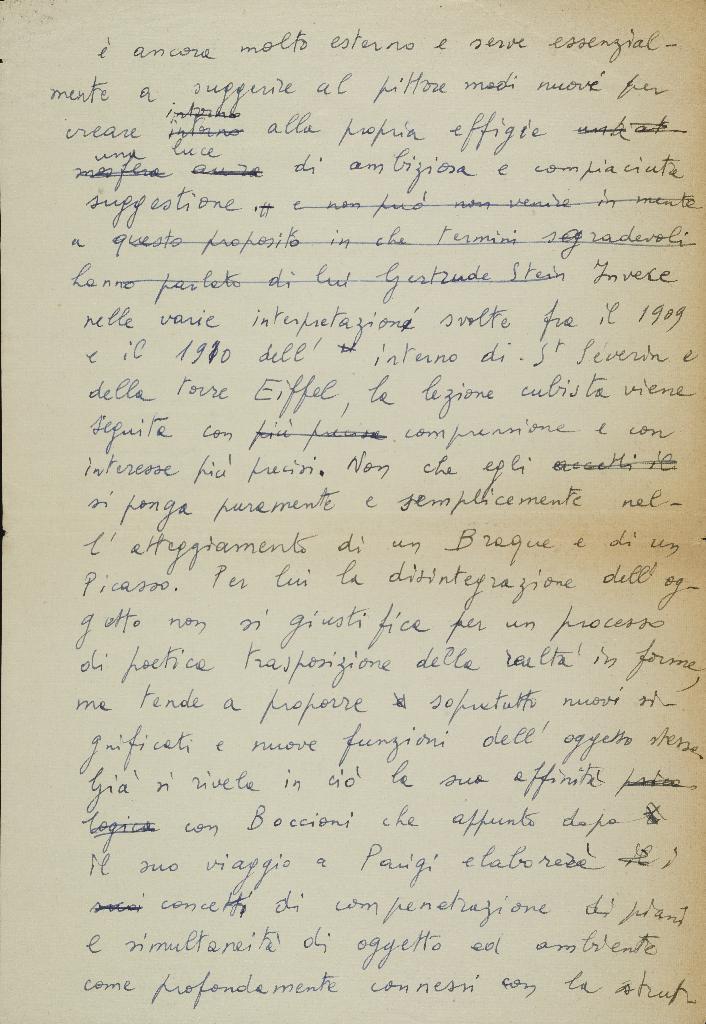 è ancora molto esterno e serve essenzial-
mente a suggerire al pittore modi nuovi per
intorno
creare intorno alla propria effigie un'at-
una luce
mosfera aura di ambiziosa e compiaciuta
suggestione. e non può non venire in mente
a questo proposito in che termini sgradevoli
hanno parlato di lui Gertrude Stein Invece
nelle varie interpretazioni svolte fra il 1909
e il 1910 dell' interno di St Séverin e
della torre Eiffel, la lezione cubista viene
seguita con più precisa comprensione e con
interesse più precisi. Non che egli accetti il
si ponga puramente e semplicemente nel-
l'atteggiamento di un Braque e di un
Picasso. Per lui la disintegrazione dell'og-
getto non si giustifica per un processo
di poetica trasposizione della realtà in forme,
ma tende a proporre sopratutto nuovi si-
gnificati e nuove funzioni dell'oggetto stesso.
Già si rivela in ciò la sua affinità psico
logica con Boccioni che appunto dopo
il suo viaggio a Parigi elaborerà il i
suoi concetti di compenetrazione di piani
e simultaneità di oggetto ed ambiente
come profondamente connessi con la strut-